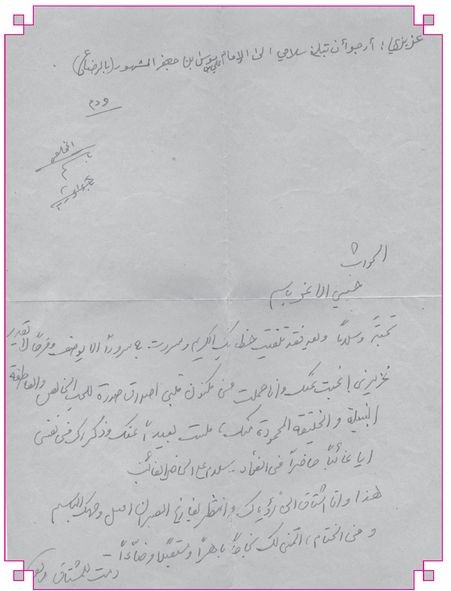 عزيزي! أرجو أن تبلغ سلامي الى الامام علي بن موسى ابن جعفر المشهور (بالرضا ع)
ودم
المخلص
الكويت
حبيبي الاعز باسم
تحية وسلاماً وبعد فقد تلقيت خطابك الكريم وسررت به سروراً لا يوصف وفرحاً لا تقدير
عزيزي! غبت عنك وانا حملت في مكنون قلبي اصدق صورة للحب الخالص والعاطفة
النبيلة و الخليقة المحمودة منك، ملبت بعيداً عنك وذكراك في نفسي
ايا غائباً حاضراً في الفؤاد سلام على الحاضر الغائب
هذا وانا اشتاق الى رؤياك وانتظر بفارغ الصبر ان اصل وجهك الباسم
و في الختام، اتمنى لك نجاحاً باهراً ومستقبلاً وضّاءاً -
دمت للمشتاق